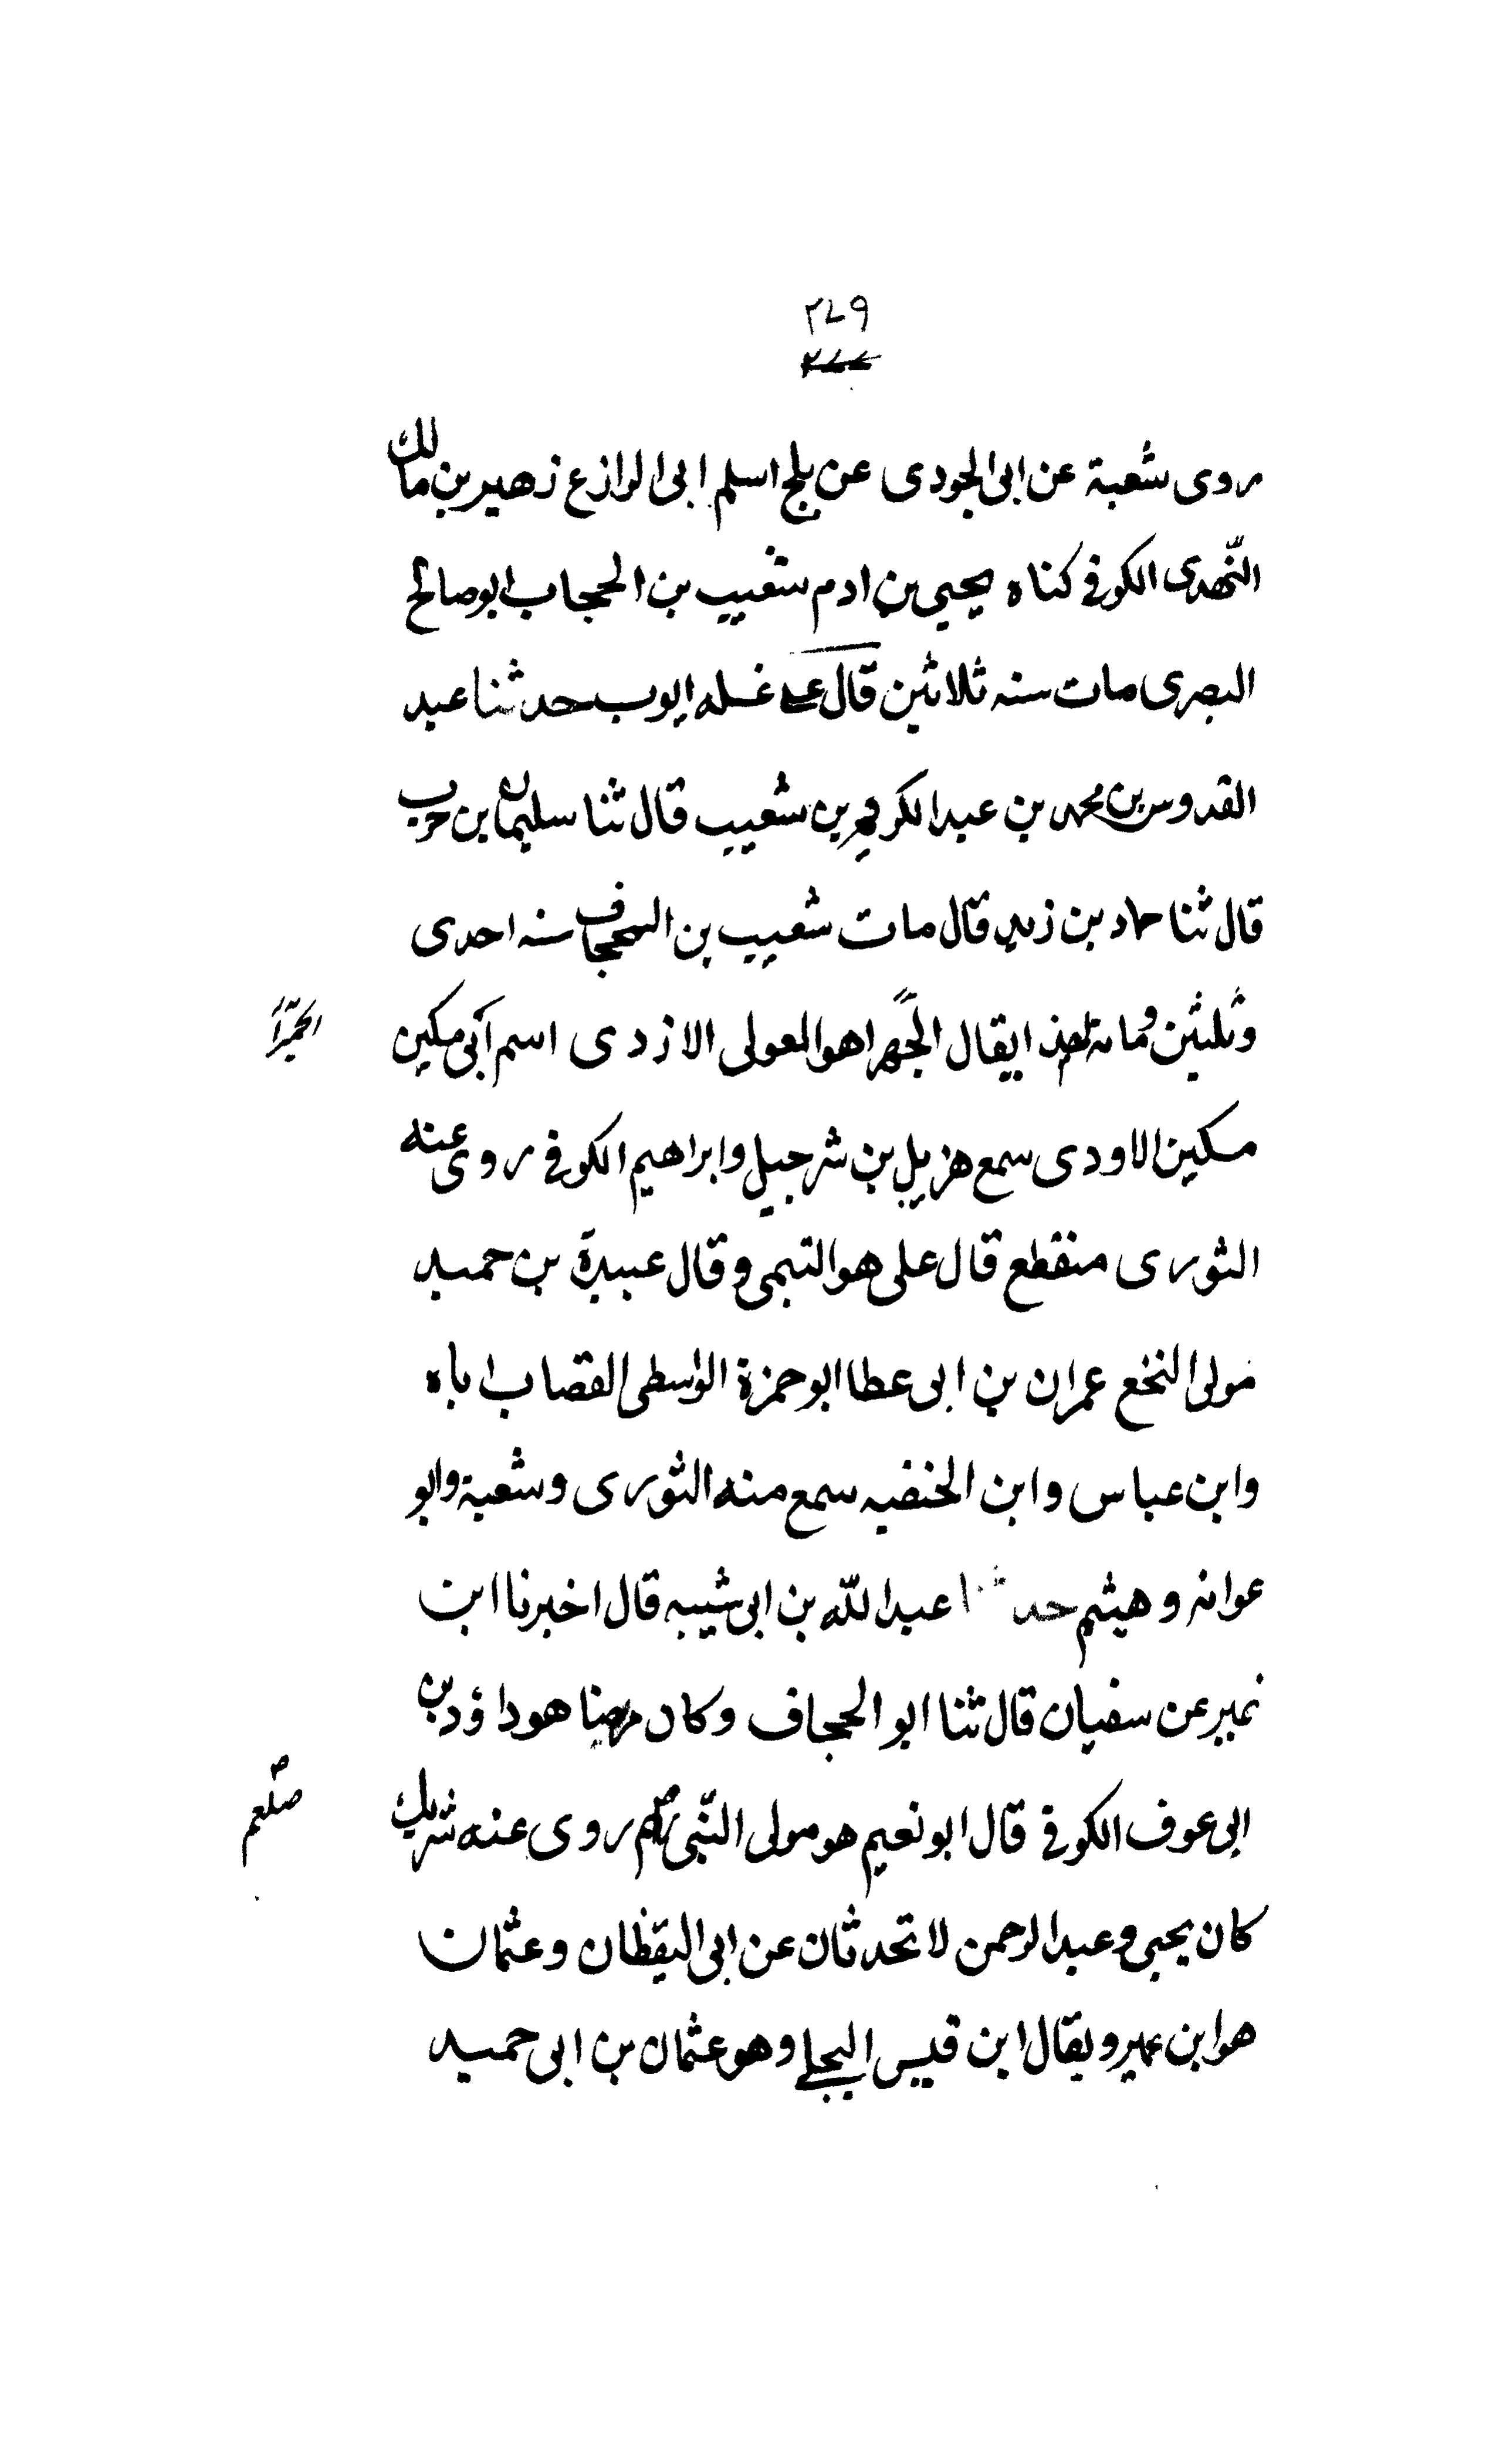 ٣٤٩
روى شعبة عن ابى الجودى عن بلج اسلم ابى الرازع زهير بن مالك
النّهدى الكوفى كناه يحيى بن ادم شعيب بن الحجاب ابو صالح
البصرى مات سنه ثلاثين قال على غسله ايوب حدثنا عبد
القدوس بن محمد بن عبد الكريم بن شعيب قال ثنا سليمان بن حرب
قال ثنا حماد بن زيد قال مات شعيب بن الحجاف سنه احدى
وثلثين ومائه يقال الجهرا هو المعولى الازدى اسم ابى مكين
الحميرا
مسكين الاودى سمع هزيل بن شرجيل وابراهيم الكوفى روى عنه
الثورى منقطع قال على هو التيمى وقال عبيدة بن حميد
مولى النخع عمران بن ابى عطا ابو حمزة الواسطى القصاب اباه
وابن عباس وابن الحنفيه سمع منه الثورى وشعبة وابو
عوانه وهيثم حدثنا عبد اللّه بن ابى شيبه قال اخبرنا ابن
نمير عن سفيان قال ثنا ابو الحجاف وكان مرضيا هو داؤد بن
ابى عوف الكوفى قال ابو نعيم هو مولى النّبى روى عنه شريك
صلعم
كان يحيى وعبد الرحمن لا تحدثان عن ابى اليقظان وعثمان
هو ابن عمير ويقال ابن قيس البجلى وهو عثمان بن ابى حميد